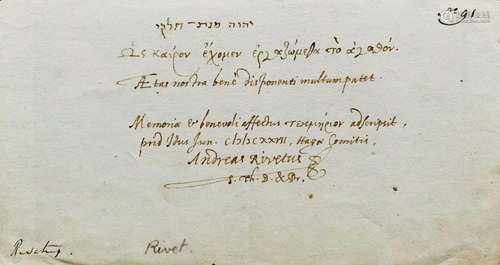 № 91
יהוה מנת־חלקי
Ὡς καίρον ἔχομεν ἐργαζώμεθα τὸ ἀγαθόν.
Ætas nostra benè disponenti multum patet.
Memoriæ & benevoli affectus τεκμήριον adscripsit,
prid. Idus Jun. Comitis,
Andreas Rivetus
S. Th. D. & Pr.
Rivetus
Rivet.